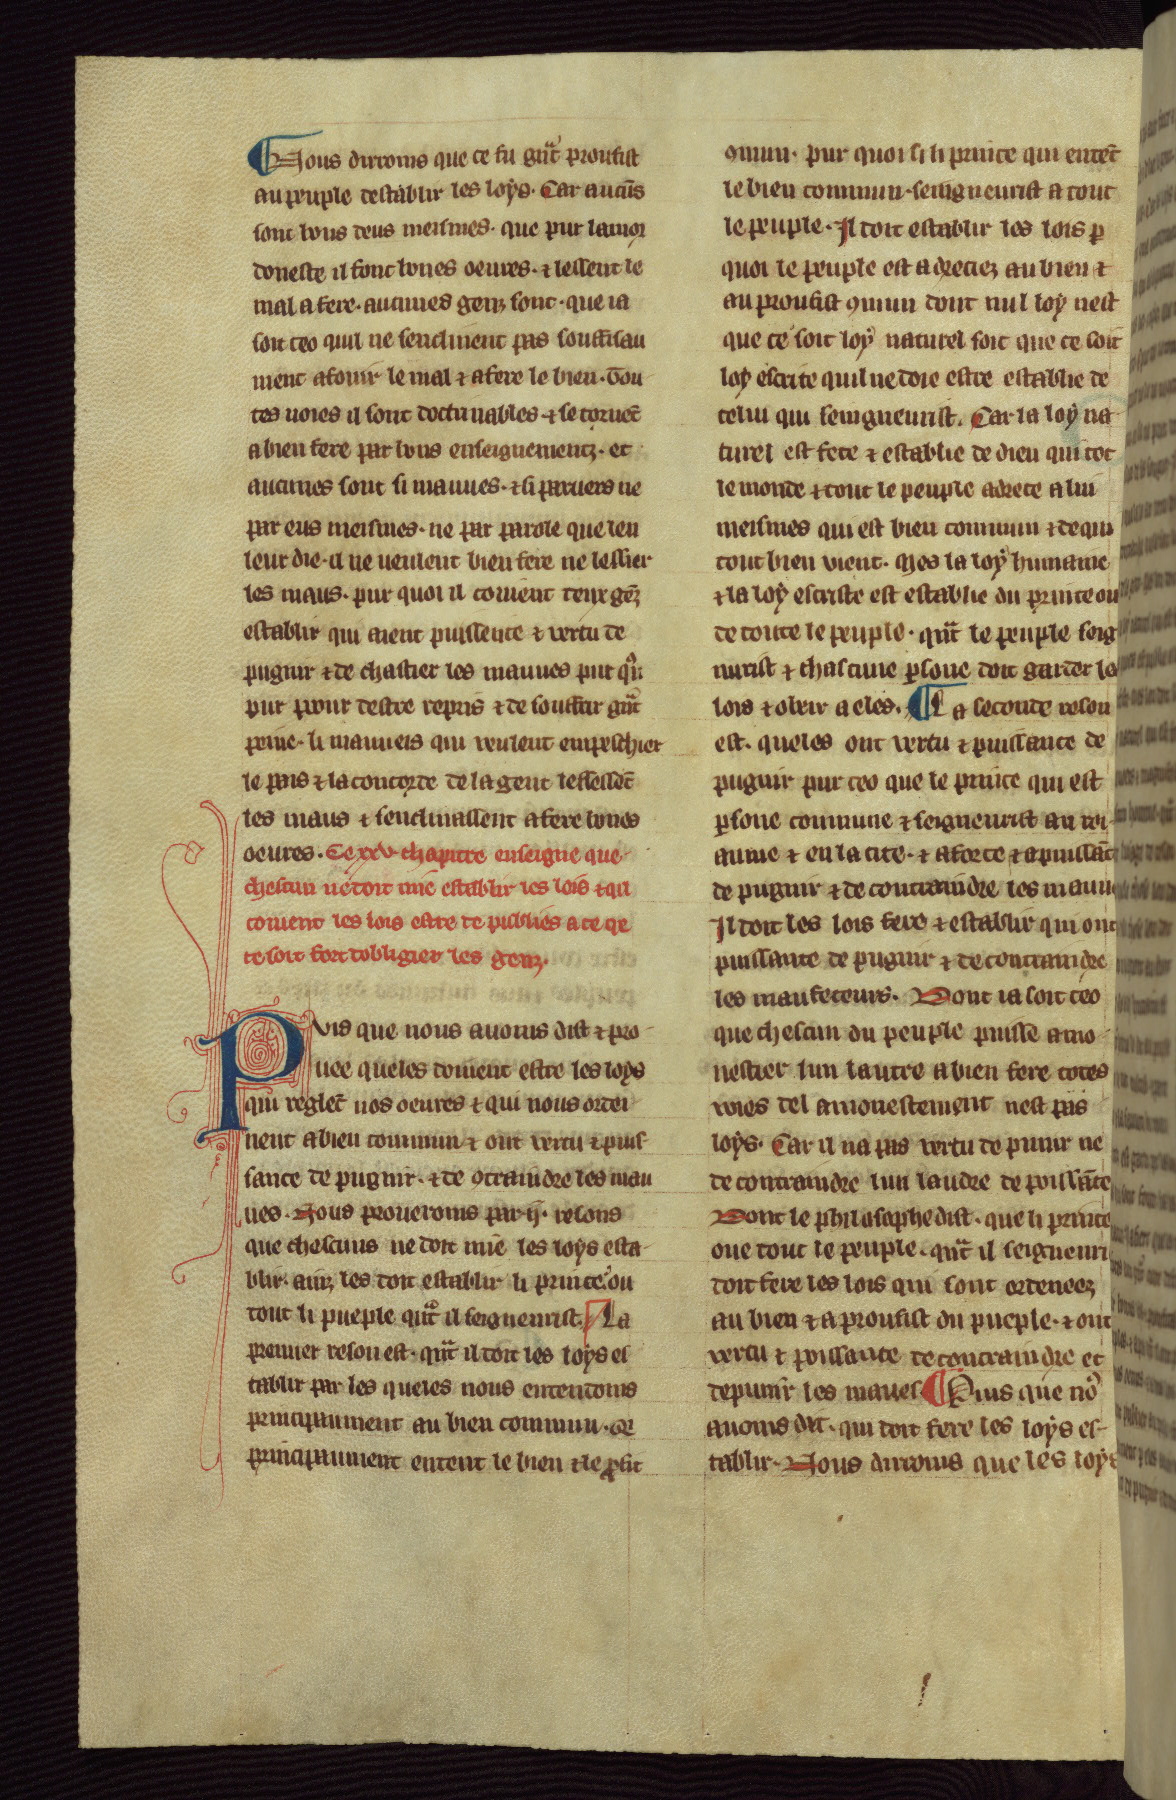 Nous dirroms que ce fu gᵃnt proufist
au peuple destablir les loys. Car aucūs
sont bons deus meismes. que pur lamor
doneste il font bones oeures. ⁊ lessent le
mal a fere. aucunes genz sont. que ia
soit ceo quil ne senclinent pas souffisau
ment a fouir le mal ⁊ a fere le bien. Tou
tes uoies il sont doctrinables ⁊ se tornēt
a bien fere par bons enseignementz. et
aucunes sont si mauues. ⁊ si paruers ne
par eus meismes. ne par parole que len
leur die. il ne ueulent bien fere ne lessier
les maus. pur quoi il couient teux gēz
establir qui aient puissence ⁊ vertu de
pugnir ⁊ de chastier les mauues pur qͥl
pur pour destre repris ⁊ de souffrir gᵃnt
peine. li mauueis qui veulent enpeschier
le pais ⁊ la concorde de la gent lessessēt
les maus ⁊ senclinassent a fere bones
oeures. Ce xxv chapitre enseigne que
chescun ne doit mie establir les lois ⁊ qil
couient les lois estre de publies a ce qe
ce soit fort dobligier les genz.
Puis que nous auoms dist ⁊ pro
uee queles doiuent estre les loys
qui reglēt nos oeures ⁊ qui nous ordei
nent a bien commun ⁊ ont vertu ⁊ puis
sance de pugnir. ⁊ de ꝯtraindre les mau
ues. Nous proueroms par ij. resons
que chescuns ne doit mie les loys esta
blir. ainz les doit establir li prince ou
tout li pueple qᵃnt il seigneurist. La
premier reson est. qᵃnt il doit les loys es
tablir par les queles nous entendoms
principaument au bien commun. or
principaument entent le bien ⁊ le ꝓfit
ꝯmun. pur quoi si li prince qui entēt
le bien commun. seingneurist a tout
le peuple. Il doit establir les lois ꝑ
quoi le peuple est adreciez au bien ⁊
au proufist ꝯmun dont nul loy nest
que ce soit loy naturel soit que ce soit
loy escrite quil ne doie estre establie de
celui qui seingneurist. Car la loy na
turel est fete ⁊ establie de dieu qui tot
le monde ⁊ tout le peuple adrece a lui
meismes qui est bien commun ⁊ de qui
tout bien vient. Mes la loy humaine
⁊ la loy escriste est establie du prince ou
de toute le peuple. qᵃnt le peuple seig
nurist ⁊ chascune ꝑsone doit garder le
lois ⁊ obeir a eles. La seconde reson
est. queles ont vertu ⁊ puissance de
pugnir pur ceo que le prince qui est
ꝑsone commune ⁊ seigneurist au roi
aume ⁊ en la cite. ⁊ a force ⁊ a puissāce
de pugnir ⁊ de contraindre les mauu
Il doit les lois fere ⁊ establir qui ont
puissance de pugnir ⁊ de contraindre
les maufeteurs. Dont ia soit ceo
que chescun du peuple puisse amo
nestier lun lautre a bien fere totes
voies tel amonestement nest pas
loys. Car il na pas vertu de punir ne
de contraindre lun laudre de poissāce
Dont le philosophe dist. que li prince
oue tout le peuple. qᵃnt il seigneuri
doit fere les lois qui sont ordeneez
au bien ⁊ a proufist du pueple. ⁊ ont
vertu ⁊ poissance de contraindre et
de punir les maues. Puis que noꝰ
auoms dit. qui doit fere les loys es-
tablir. Nous dirroms que les loys